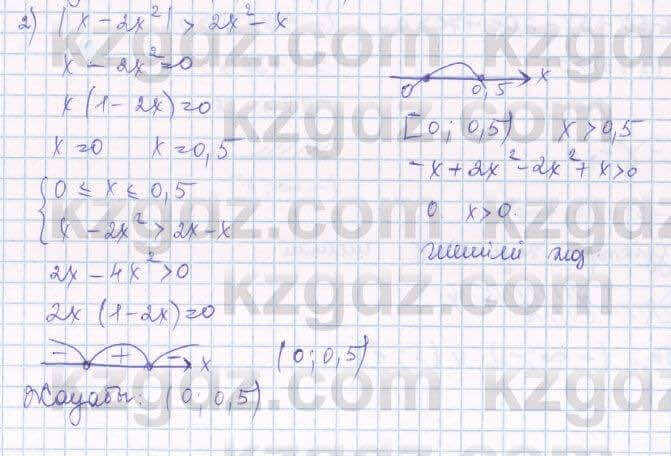 2) |x - 2x²| > 2x² - x
x - 2x² = 0
x (1 - 2x) = 0
x = 0 x = 0,5
{ 0 ≤ x ≤ 0,5
x - 2x² > 2x - x
2x - 4x² > 0
2x (1 - 2x) = 0
- + - x
(0; 0,5)
Жауабы: (0; 0,5)
0 0,5 x
[0; 0,5) x > 0,5
-x + 2x² - 2x² + x > 0
0 x > 0.
шешімі жоқ
kzgdz.com
kzgdz.com
kzgdz.com
kzgdz.com
kzgdz.com